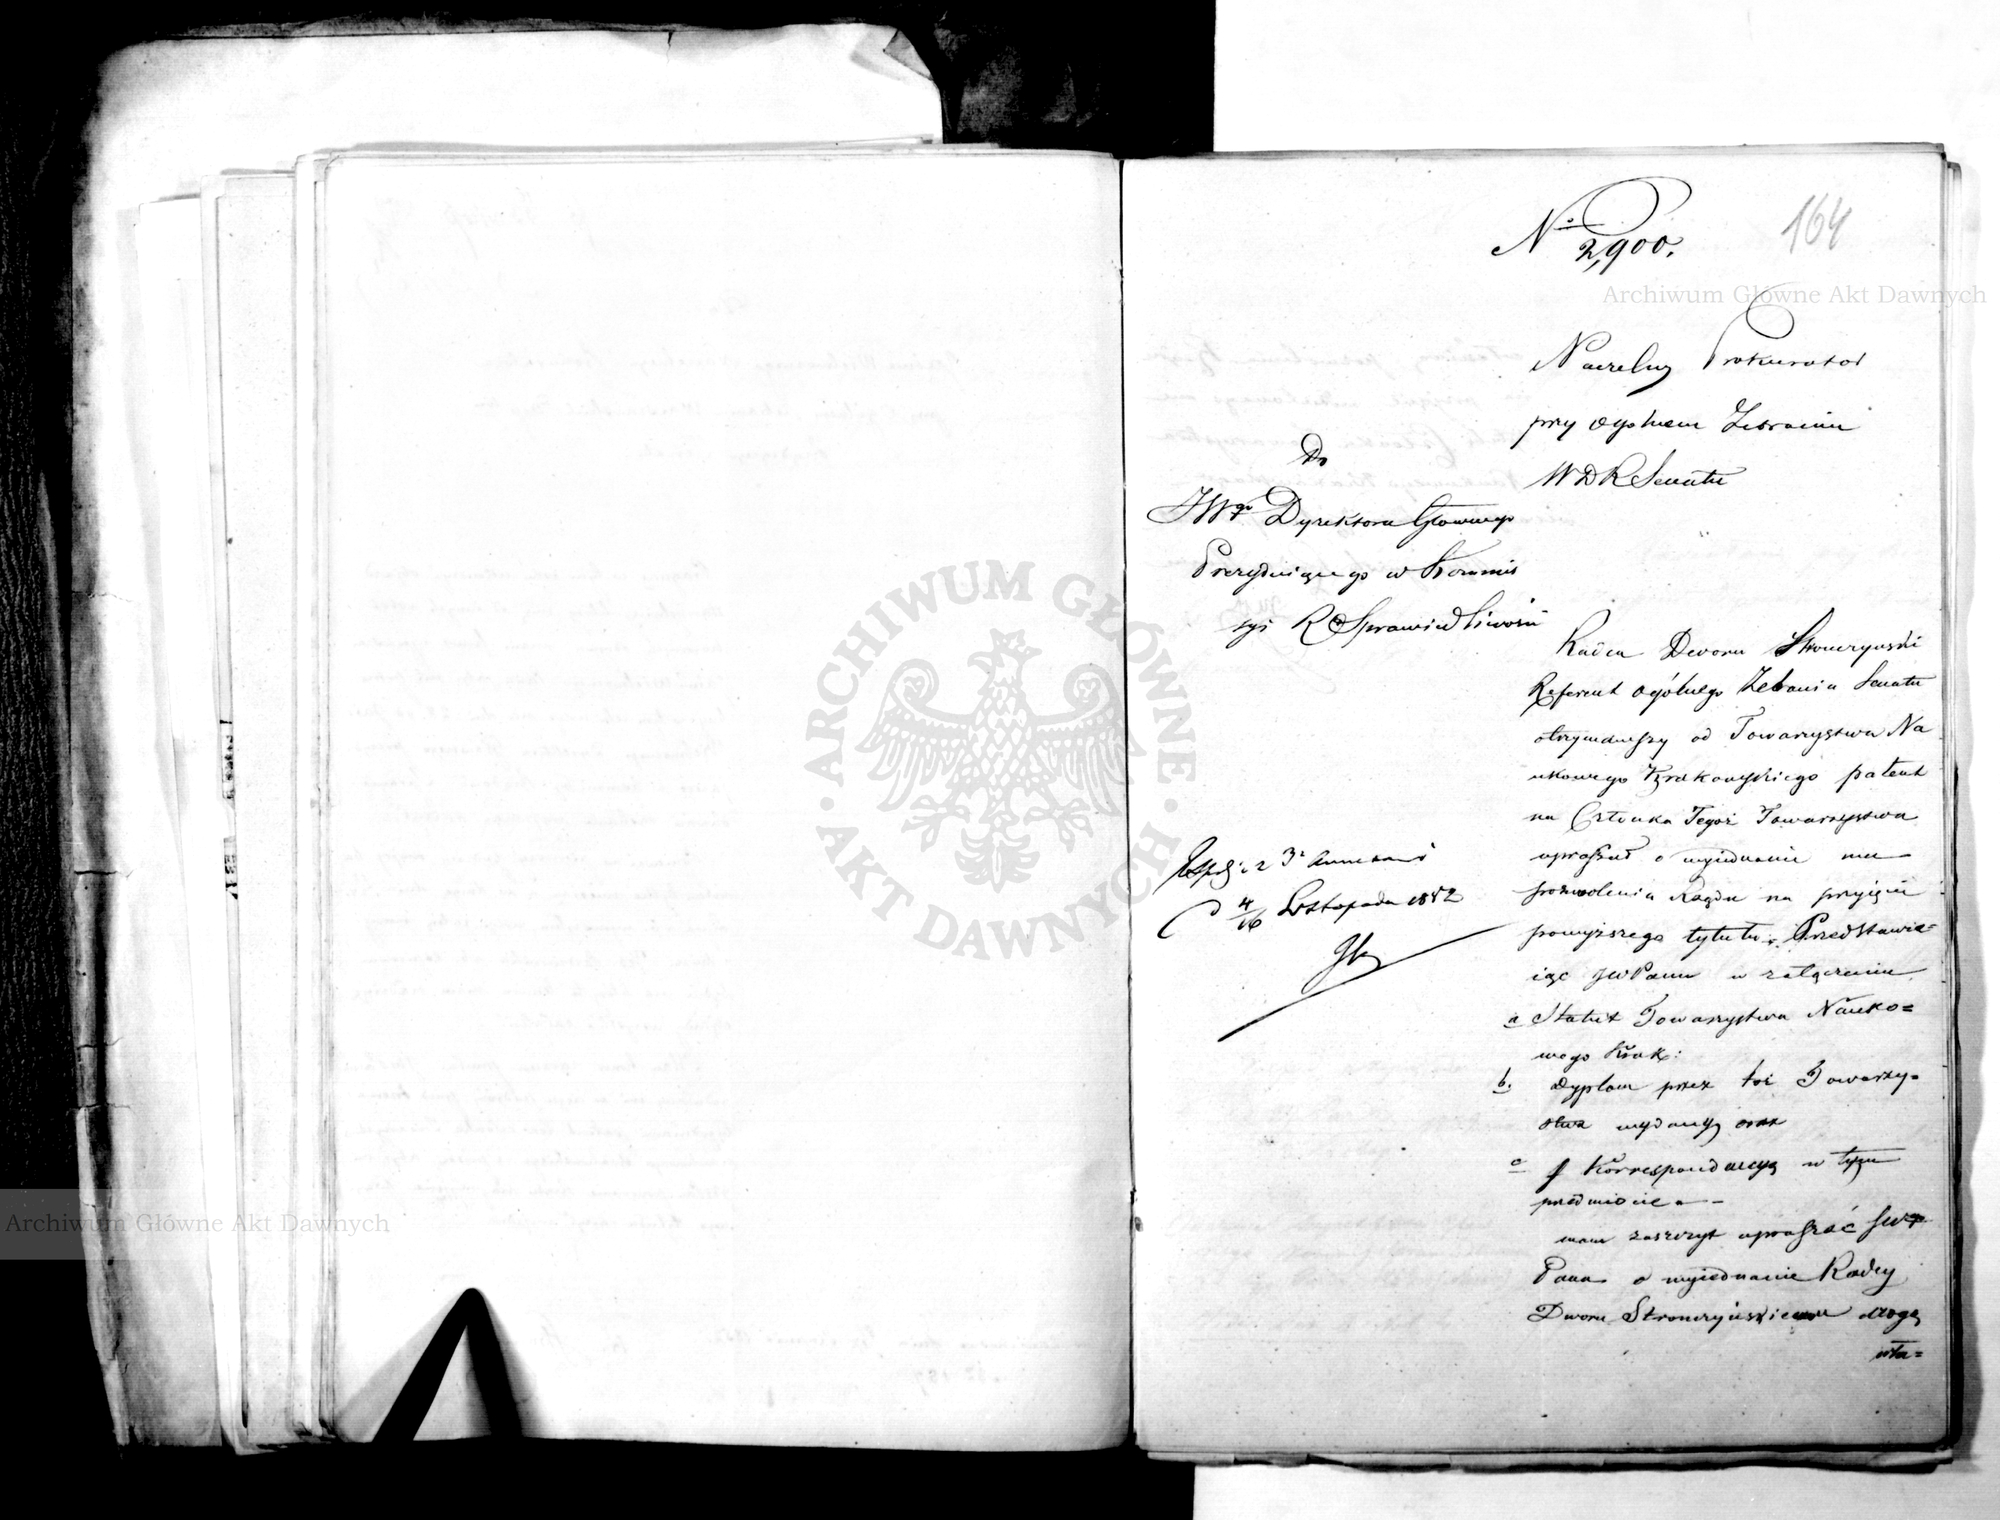 No 2,900.
164
Archiwum Główne Akt Dawnych
Naczelny Prokurator
przy Ogolnem Zebraniu
WDR Senatu
Do
JWgo Dyrektora Głownego
Prezydującego w Kommis
syi R Sprawiedliwości
Radca Dworu Stronczynski
Referent Ogólnego Zebrania Senatu
otrzymawszy od Towarzystwa Na
ukowego Krakowskiego patent
na Członka Tegoż Towarzystwa
upraszał o wyjednanie mu
pozwolenia Rządu na przyjęcie
powyższego tytułu. Przedstawia=
iąc JW Panu w załączeniu
a Statut Towarzystwa Nauko=
wego Krak:
b. Dyplom przez toż Towarzy=
stwo wydany oraz
c Korrespondencyą w tym
przedmiocie
mam zaszczyt upraszać JW
Pana o wyiednanie Radcy
Dworu Stronczyńskiemu drogą
wła=
z 3a annexami
d 4/16 Listopada 1852
ARCHIWUM GŁÓWNE
AKT DAWNYCH
Archiwum Główne Akt Dawnych